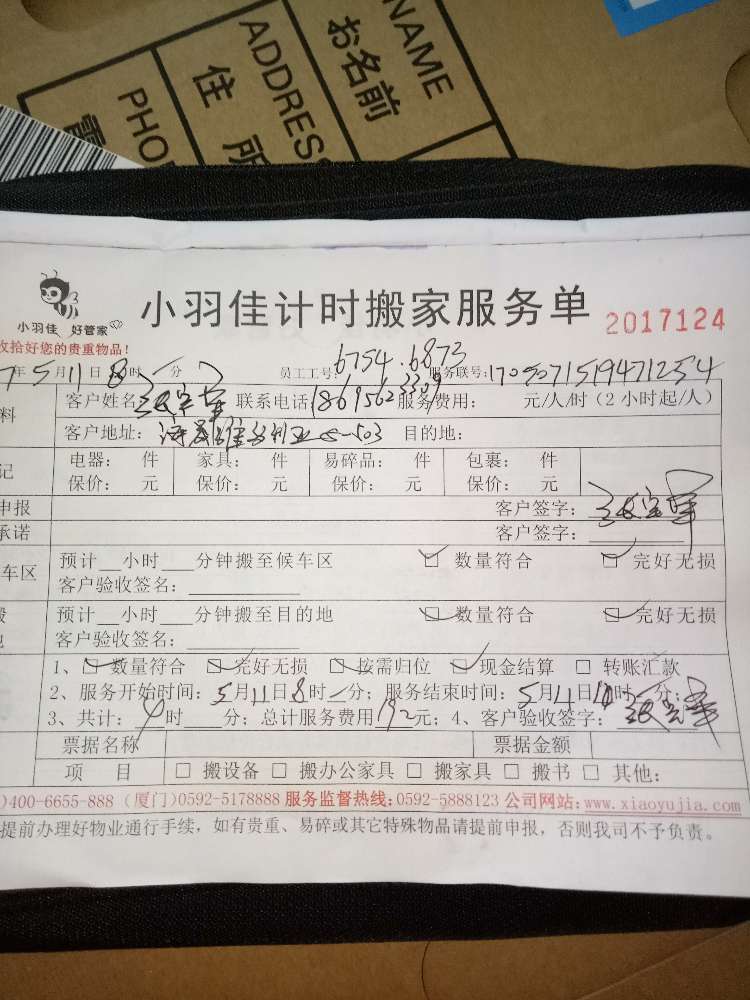 NAME
お名前
ADDRESS
住 所
PHO
電
小羽佳 好管家
小羽佳计时搬家服务单
2017124
收拾好您的贵重物品!
7年5月11日8时 分 员工工号: 6754.6873 服务联号:
客户姓名: 联系电话: 服务费用: 元/人/时(2小时起/人)
料
客户地址: 目的地:
记
电器: 件 家具: 件 易碎品: 件 包裹: 件
保价: 元 保价: 元 保价: 元 保价: 元
申报 客户签字:
承诺 客户签字:
车区 预计__小时___分钟搬至候车区 数量符合 完好无损
客户验收签名:
搬 预计__小时___分钟搬至目的地 数量符合 完好无损
客户验收签名:
1、 数量符合 完好无损 按需归位 现金结算 转账汇款
2、服务开始时间:5月11日8时 分;服务结束时间:5月11日10时 分;
3、共计: 4时 分;总计服务费用192元;4、客户验收签字:
票据名称 票据金额
项 目 □ 搬设备 □ 搬办公家具 □ 搬家具 □ 搬书 □ 其他:
)400-6655-888 (厦门)0592-5178888 服务监督热线:0592-5888123 公司网站:www.xiaoyujia.com
提前办理好物业通行手续,如有贵重、易碎或其它特殊物品请提前申报,否则我司不予负责。